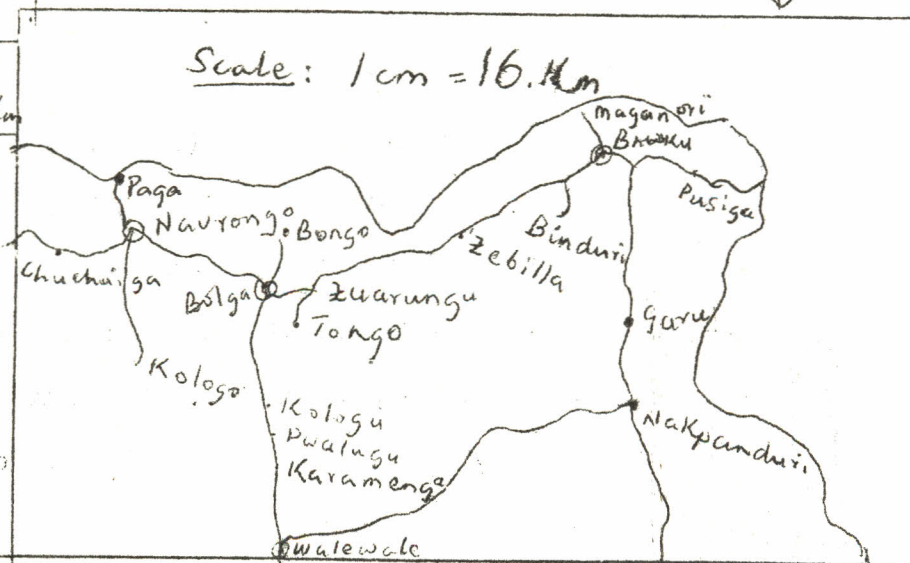 Scale: 1 cm = 16. Km
Maganori
BAWKU
Paga
Pusiga
Navrongo
Bongo
Binduri
Zebilla
Chuchuiga
Bolga
Zuarungu
Tongo
Garu
Kologo
Kologu
Pwalugu
Karamenga
Nakpanduri
Walewale